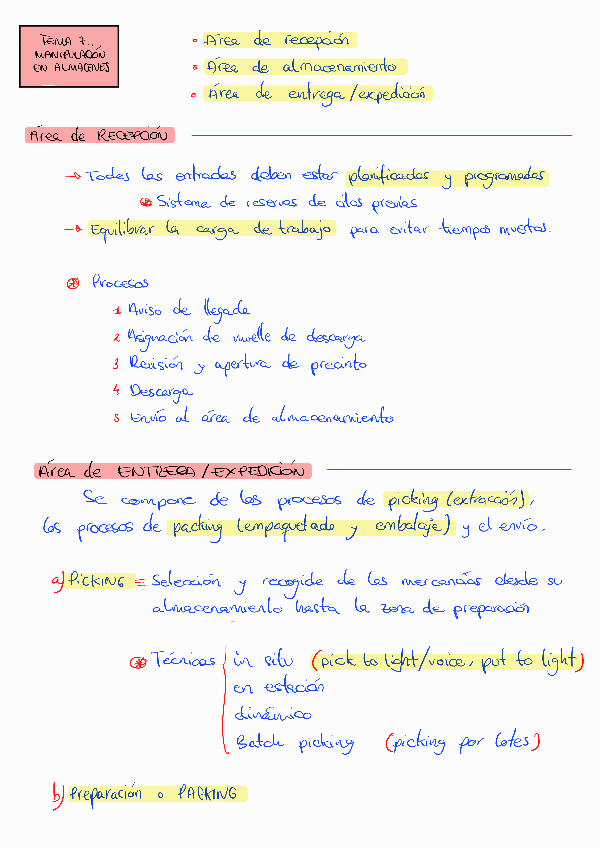 TEMA 7..
MANIPULACIÓN
EN ALMACENES
• Área de recepción
• Área de almacenamiento
• Área de entrega/expedición
Área de RECEPCIÓN
→ Todas las entradas deben estar planificadas y programadas
Sistema de reservas de citas previas
→ Equilibrar la carga de trabajo para evitar tiempos muertos.
Procesos
1 Aviso de llegada
2 Asignación de muelle de descarga
3 Revisión y apertura de precinto
4 Descarga
5 Envío al área de almacenamiento
Área de ENTREGA/EXPEDICIÓN
Se compone de los procesos de picking (extracción),
los procesos de packing (empaquetado y embalaje) y el envío.
a) PICKING = Selección y recogida de las mercancías desde su
almacenamiento hasta la zona de preparación
Técnicas in situ (pick to light/voice, put to light)
en estación
dinámico
Batch picking (picking por lotes)
b) Preparación o PACKING